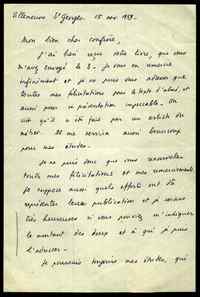 Villeneuve St Georges 15 nov 1959.
Mon bien cher confrère,
J'ai bien reçu votre livre, que vous
m'avez envoyé le 8. Je vous en remercie
infiniment et je ne puis vous adresser que
toutes mes félicitations pour le texte d'abord, et
aussi pour sa présentation impeccable. On
voit qu'il a été fait par un artiste du
métier. Il me servira aussi beaucoup
pour mes études.
Je ne puis donc que vous renouveler
toutes mes félicitations et mes remerciements.
Je suppose aussi quels efforts ont dû
représenter leur publication et je serais
très heureux si vous pouviez m'indiquer
le montant des deux et à qui je puis
l'adresser.
Je poursuis toujours mes études, qui